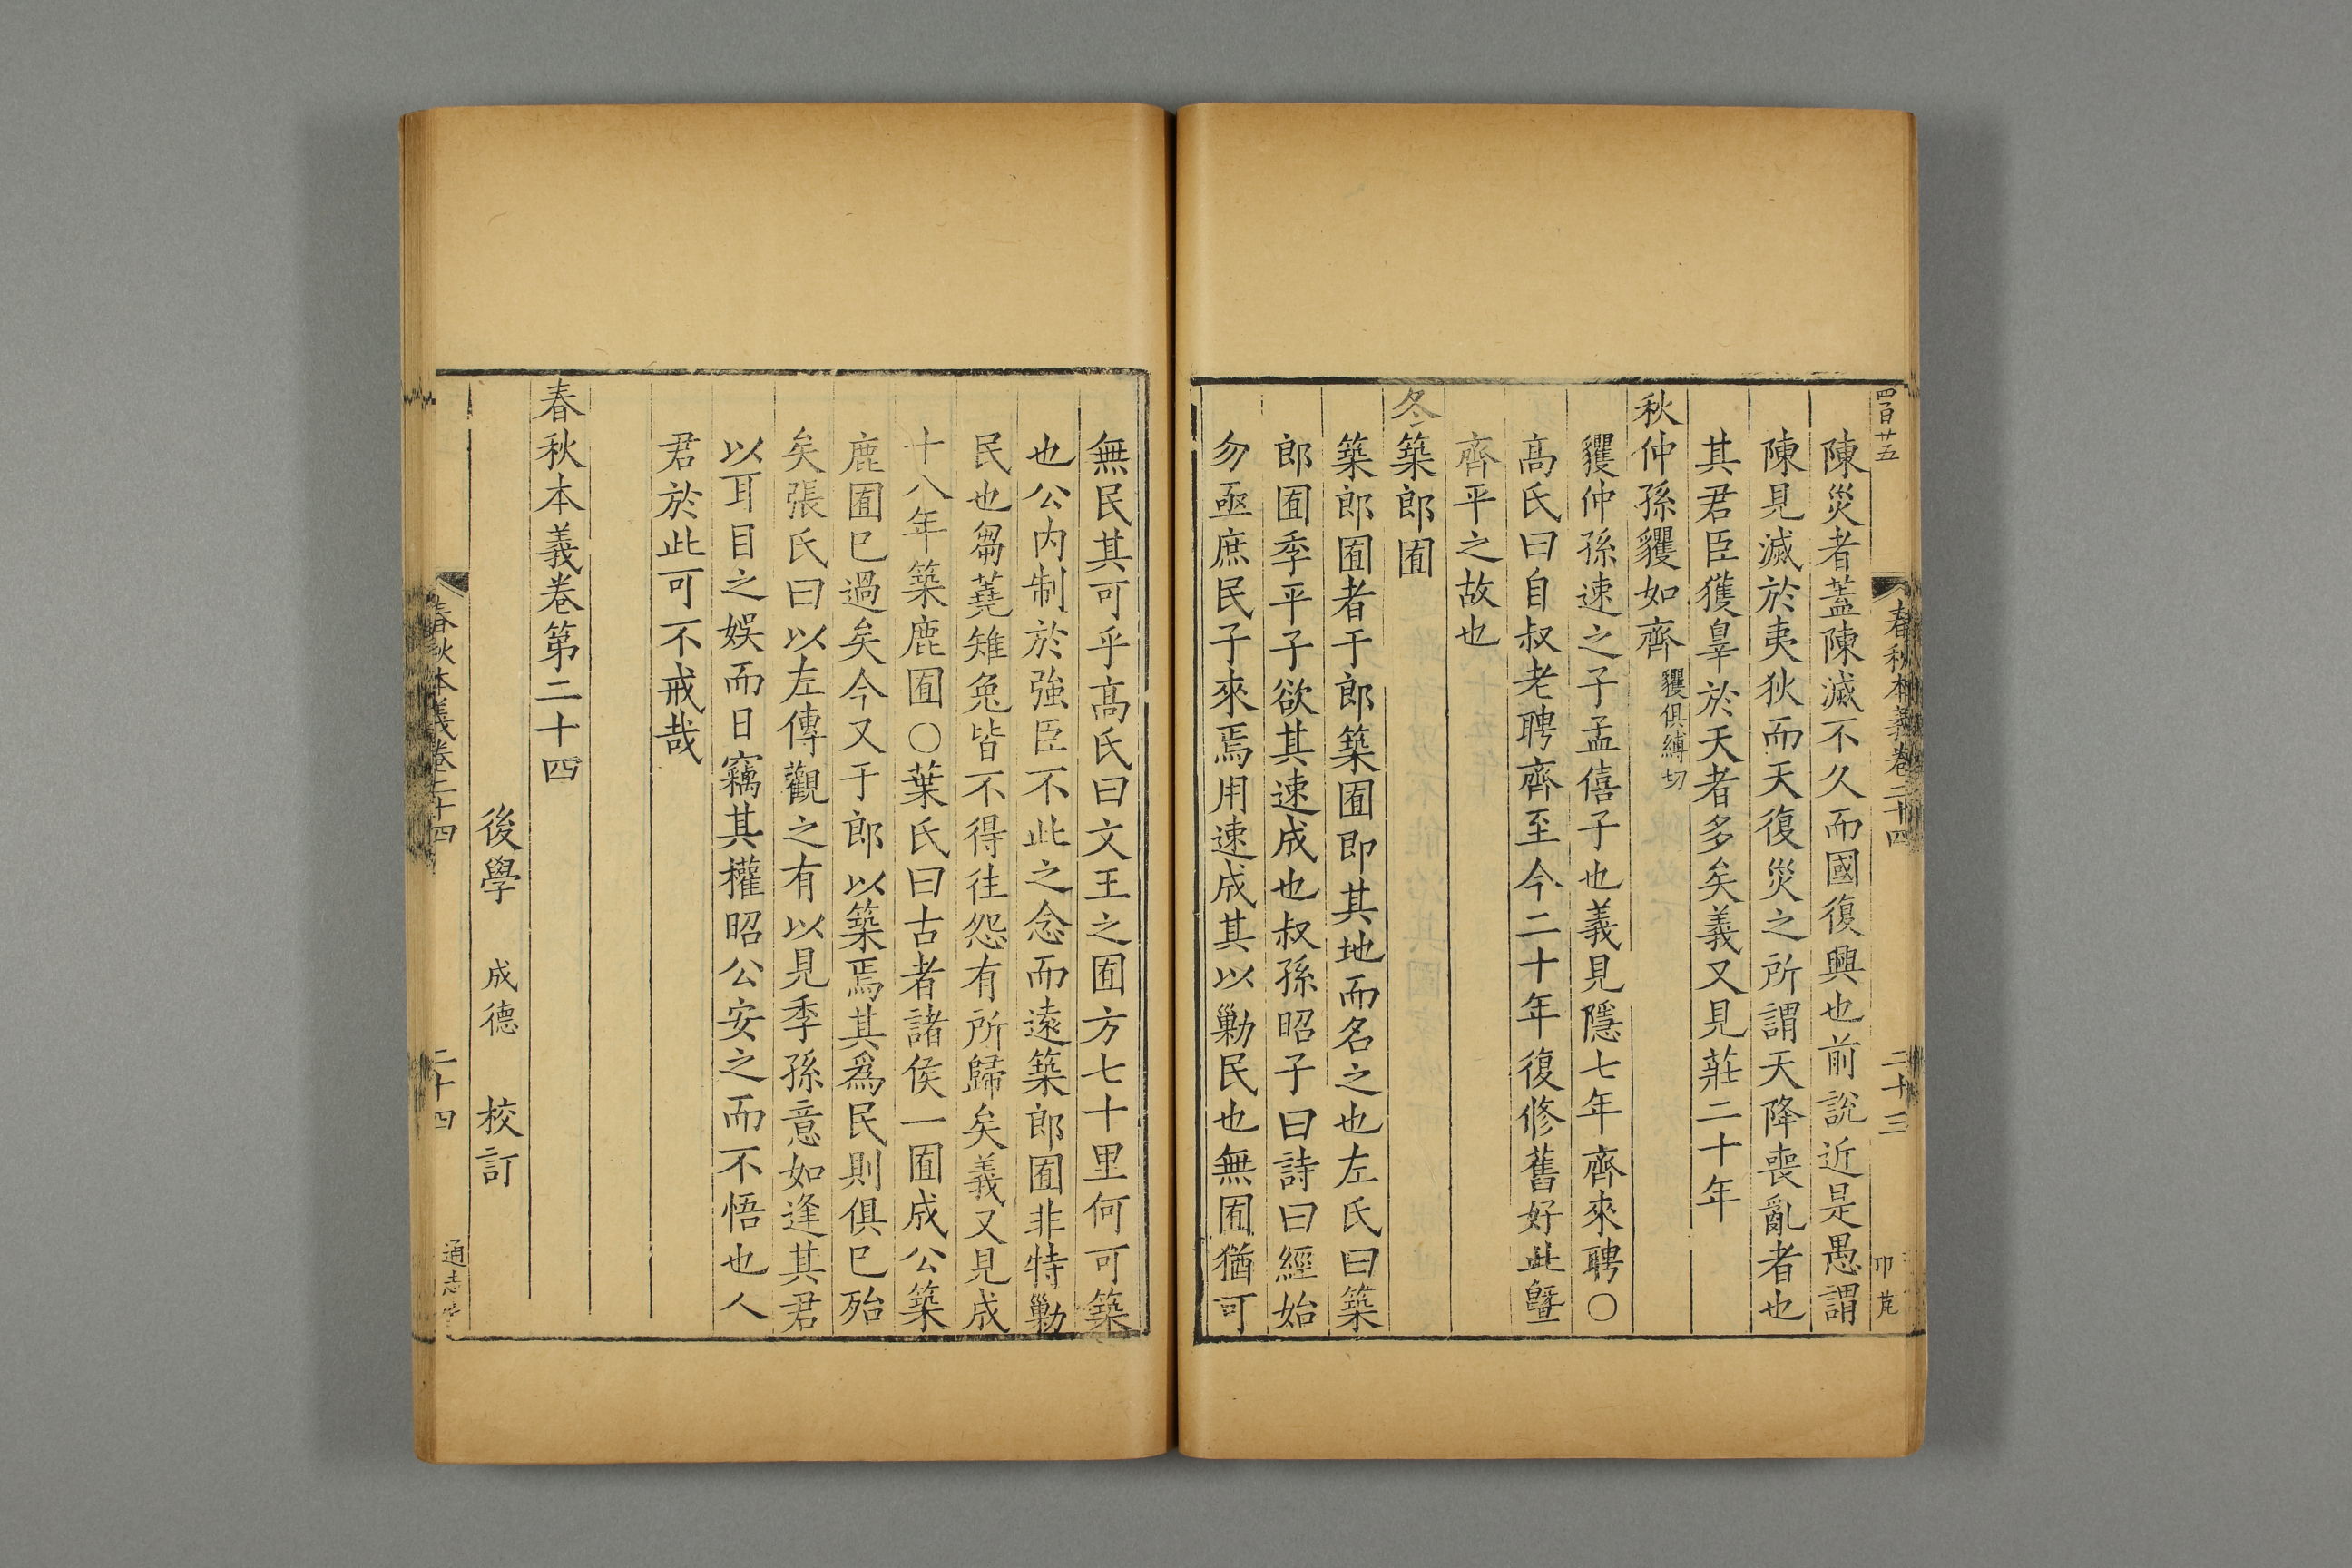 四百廿五
春秋本義卷二十四
二十三
陳災者蓋陳滅不久而國復興也前說近是愚謂
陳見滅於夷狄而天復災之所謂天降喪亂者也
其君臣獲辠於天者多矣義又見莊二十年
秋仲孫貜如齊貜俱縛切
貜仲孫速之子孟僖子也義見隱七年齊來聘○
高氏曰自叔老聘齊至今二十年復修舊好此暨
齊平之故也
冬築郎囿
築郎囿者于郎築囿即其地而名之也左氏曰築
郎囿季平子欲其速成也叔孫昭子曰詩曰經始
勿亟庶民子來焉用速成其以勦民也無囿猶可
無民其可乎高氏曰文王之囿方七十里何可築
也公内制於強臣不此之念而遠築郎囿非特勦
民也芻蕘雉兔皆不得往怨有所歸矣義又見成
十八年築鹿囿○葉氏曰古者諸侯一囿成公築
鹿囿已過矣今又于郎以築焉其為民則俱已殆
矣張氏曰以左傳觀之有以見季孫意如逢其君
以耳目之娛而日竊其權昭公安之而不悟也人
君於此可不戒哉
春秋本義卷第二十四
後學 成德 校訂
春秋本義卷二十四
二十四
通志堂